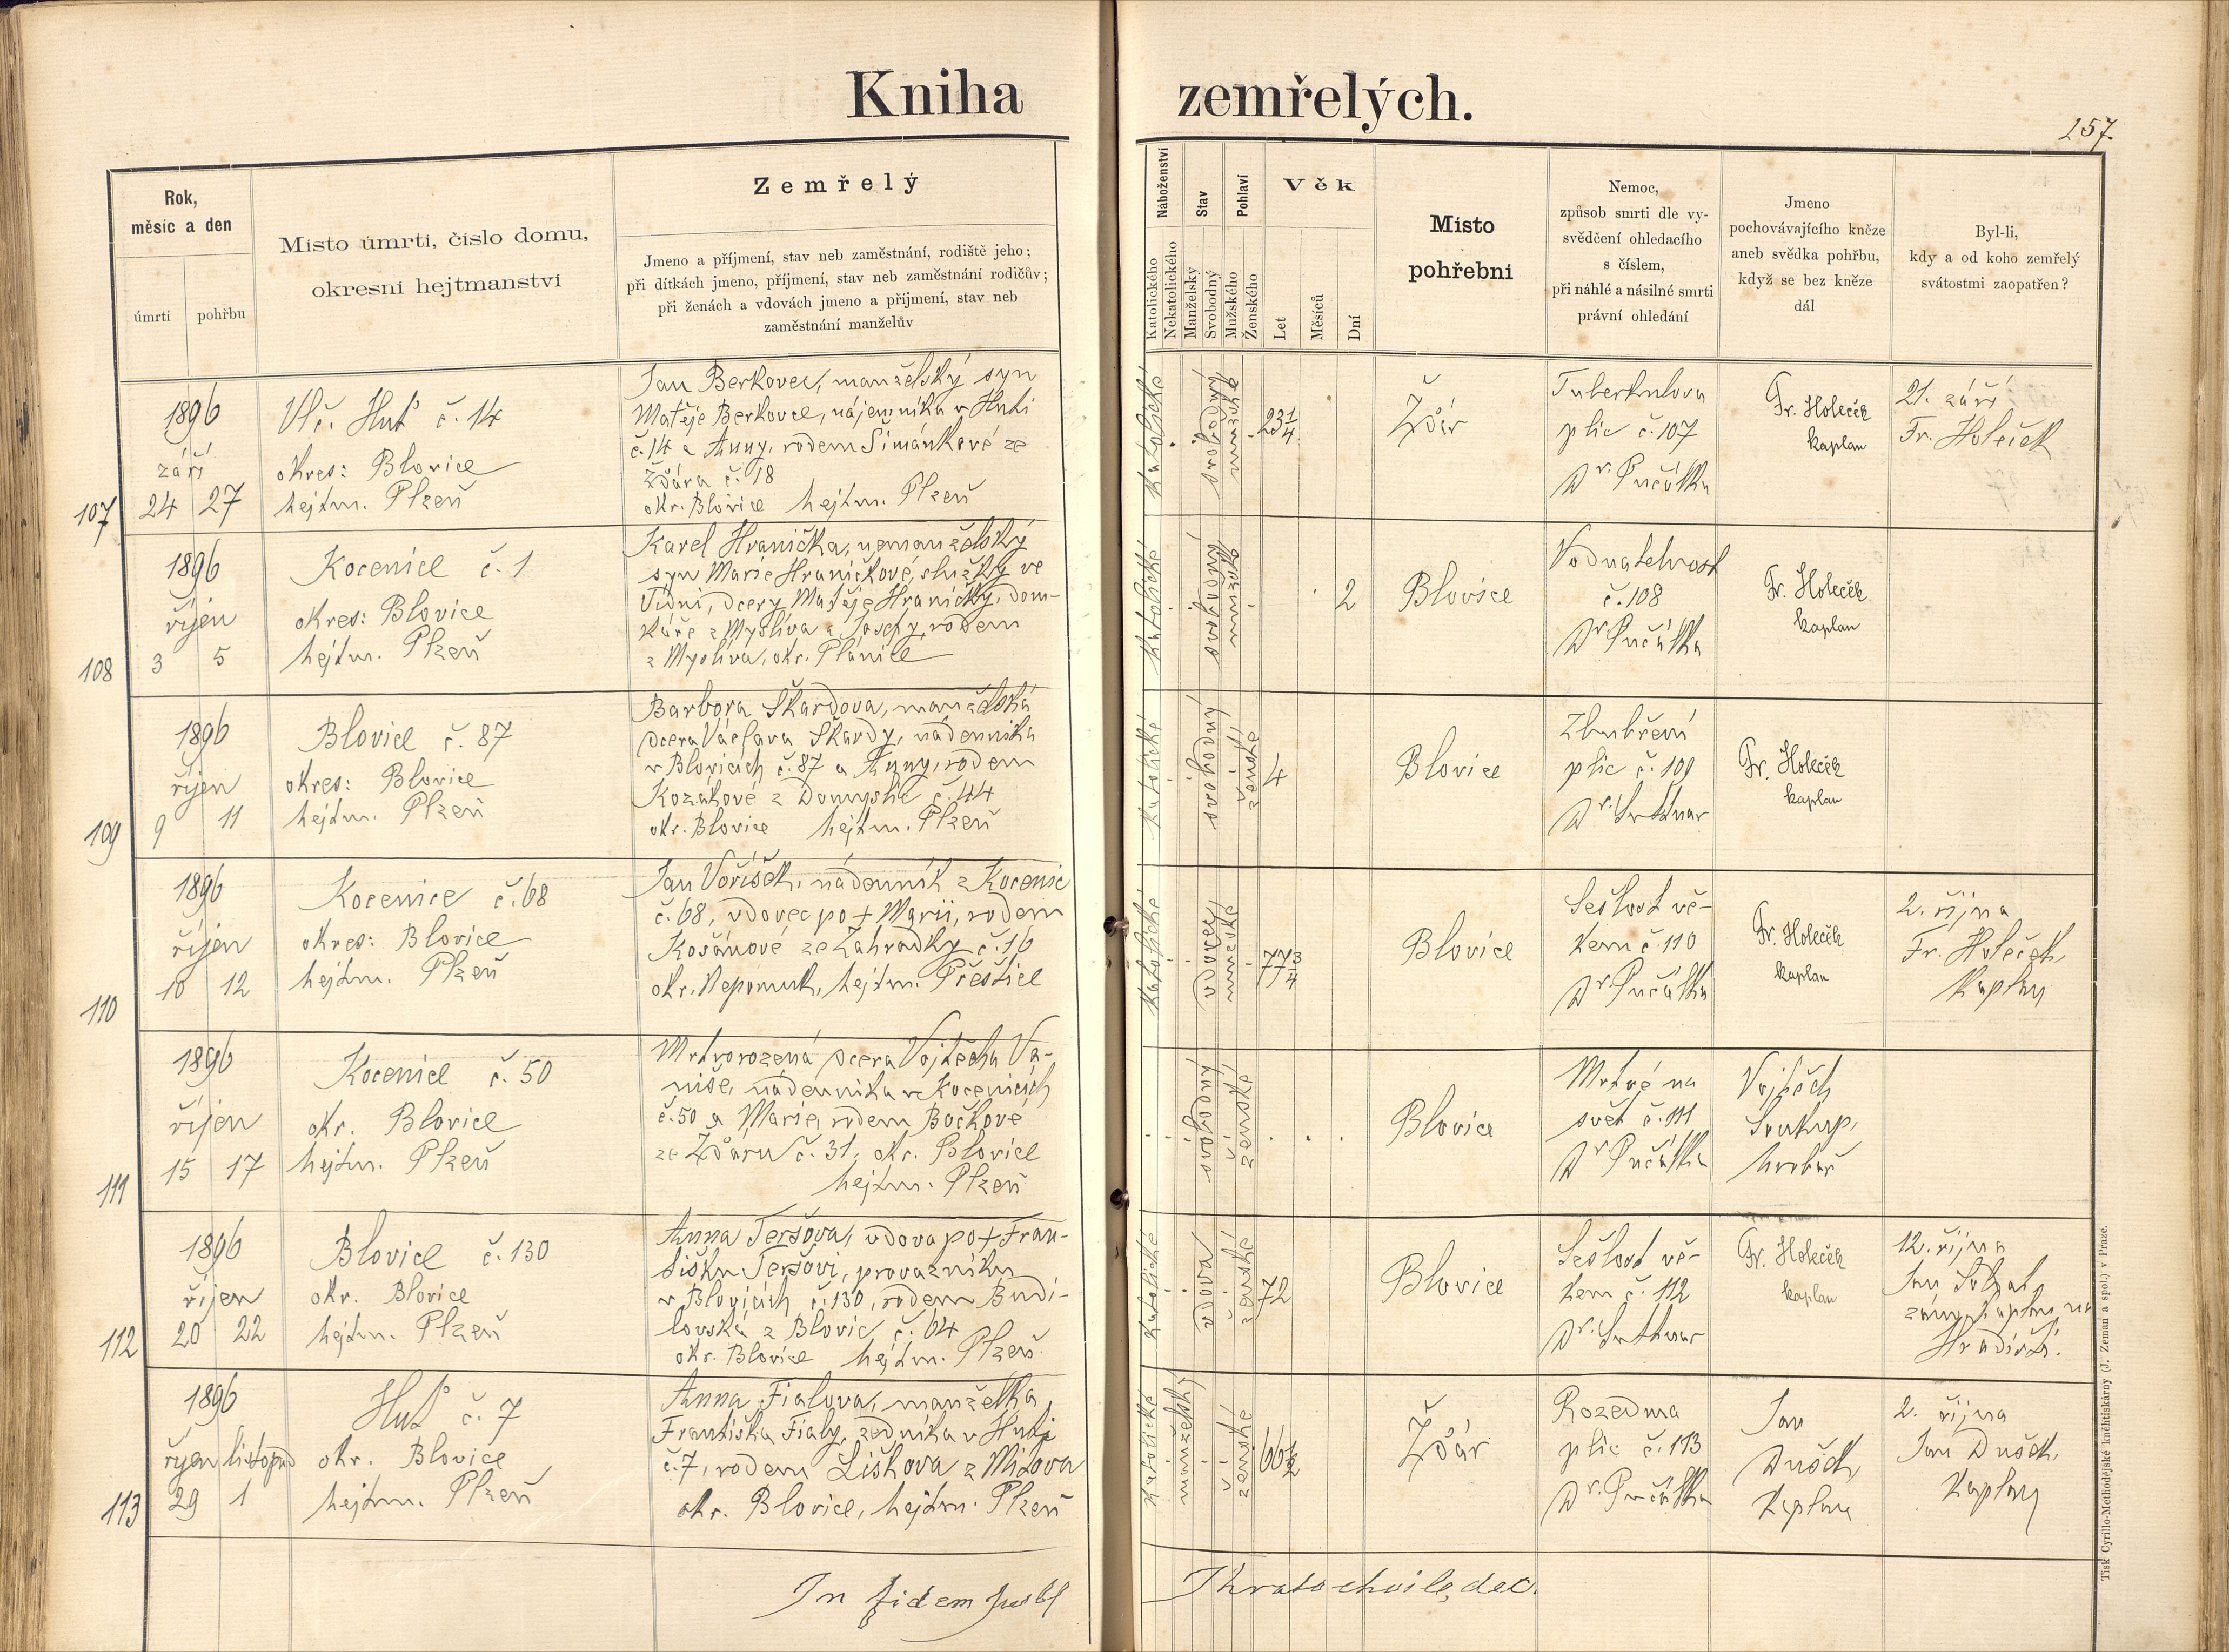 Kniha zemřelých.
257.
Rok,
měsíc a den
úmrtí
pohřbu
Místo úmrtí, číslo domu,
okresní hejtmanství
Zemřelý
Jmeno a příjmení, stav neb zaměstnání, rodiště jeho;
při dítkách jmeno, příjmení, stav neb zaměstnání rodičův;
při ženách a vdovách jmeno a příjmení, stav neb
zaměstnání manželův
Náboženství
Katolického
Nekatolického
Stav
Manželský
Svobodný
Pohlaví
Mužského
Ženského
Věk
Let
Měsíců
Dní
Místo
pohřební
Nemoc,
způsob smrti dle vy-
svědčení ohledacího
s číslem,
při náhlé a násilné smrti
právní ohledání
Jmeno
pochovávajícího kněze
aneb svědka pohřbu,
když se bez kněze
dál
Byl-li,
kdy a od koho zemřelý
svátostmi zaopatřen?
107
1896
září
24 27
Vlč. Huť č. 14
okres: Blovice
hejtm. Plzeň
Jan Berkovec, manželský syn
Matěje Berkovce, nájemníka v Huti
č. 14 a Anny, rodem Šimánkové ze
Žďára č. 18
okr. Blovice hejtm. Plzeň
katolické
svobodný
mužské
23 1/4
Žďár
Tuberkulova
plic č. 107
Dr. Pučálka
Fr. Holeček
kaplan
21. září
Fr. Holeček
108
1896
říjen
3 5
Kocenice č. 1
okres: Blovice
hejtm. Plzeň
Karel Hranička, nemanželský
syn Marie Hraničkové, služky ve
Vídni, dcery Matěje Hraničky, dom-
káře z Myslíva a Josefy, rodem
z Myslíva, okr. Plánice
katolické
svobodný
mužské
2
Blovice
Vodnatelnost
č. 108
Dr Pučálka
Fr. Holeček
kaplan
109
1896
říjen
9 11
Blovice č. 87
okres: Blovice
hejtm. Plzeň
Barbora Škardova, manželská
dcera Václava Škardy, nádenníka
v Blovicích č. 87 a Anny, rodem
Kozákové z Domyslic č. 44
okr. Blovice hejtm. Plzeň
katolické
svobodný
ženské
4
Blovice
Zbubření
plic č. 109
Fr. Holeček
kaplan
110
1896
říjen
10 12
Kocenice č. 68
okres: Blovice
hejtm. Plzeň
Jan Voříšek, nádenník z Kocenic
č. 68, vdovec po + Marii, rodem
Kosánové ze Zahrádky č. 16
okr. Nepomuk, hejtm. Přeštice
katolické
vdovec
mužské
77 3/4
Blovice
Sešlost vě-
kem č. 110
Dr Pučálka
Fr. Holeček
kaplan
2. října
Fr. Holeček,
kaplan
111
1896
říjen
15 17
Kocenice č. 50
okr. Blovice
hejtm. Plzeň
Mrtvorozená dcera Vojtěcha Va-
niše, nádenníka v Kocenicích
č. 50 a Marie, rodem Bočkové
ze Žďáru č. 31, okr. Blovice
hejtm. Plzeň
svobodný
ženské
Blovice
Mrtvé na
svět č. 111
Dr Pučálka
Vojtěch
Soukup,
hrobař
112
1896
říjen
20 22
Blovice č. 130
okr. Blovice
hejtm. Plzeň
Anna Teršova, vdova po + Fran-
tišku Teršovi, provazníku
v Blovicích č. 130, rodem Budi-
lovská z Blovic č. 64
okr. Blovice hejtm. Plzeň
katolické
vdova
ženské
72
Blovice
Sešlost vě-
kem č. 112
Fr. Holeček
kaplan
12. října
Jan
zám. kaplan na
Hradišti.
113
1896
říjen listopad
29 1
Huť č. 7
okr. Blovice
hejtm. Plzeň
Anna Fialova, manželka
Františka Fialy, zedníka v Huti
č. 7, rodem Liškova z Mítova
okr. Blovice, hejtm. Plzeň
katolické
manželský
ženské
66 1/2
Žďár
Rozedma
plic č. 113
Dr. Pučálka
Jan
Dušek,
kaplan
2. října
Jan Dušek,
kaplan
In fidem publ
JKratochvile, dec.
Tisk Cyrillo-Methodějské knihtiskárny (J. Zeman a spol.) v Praze.